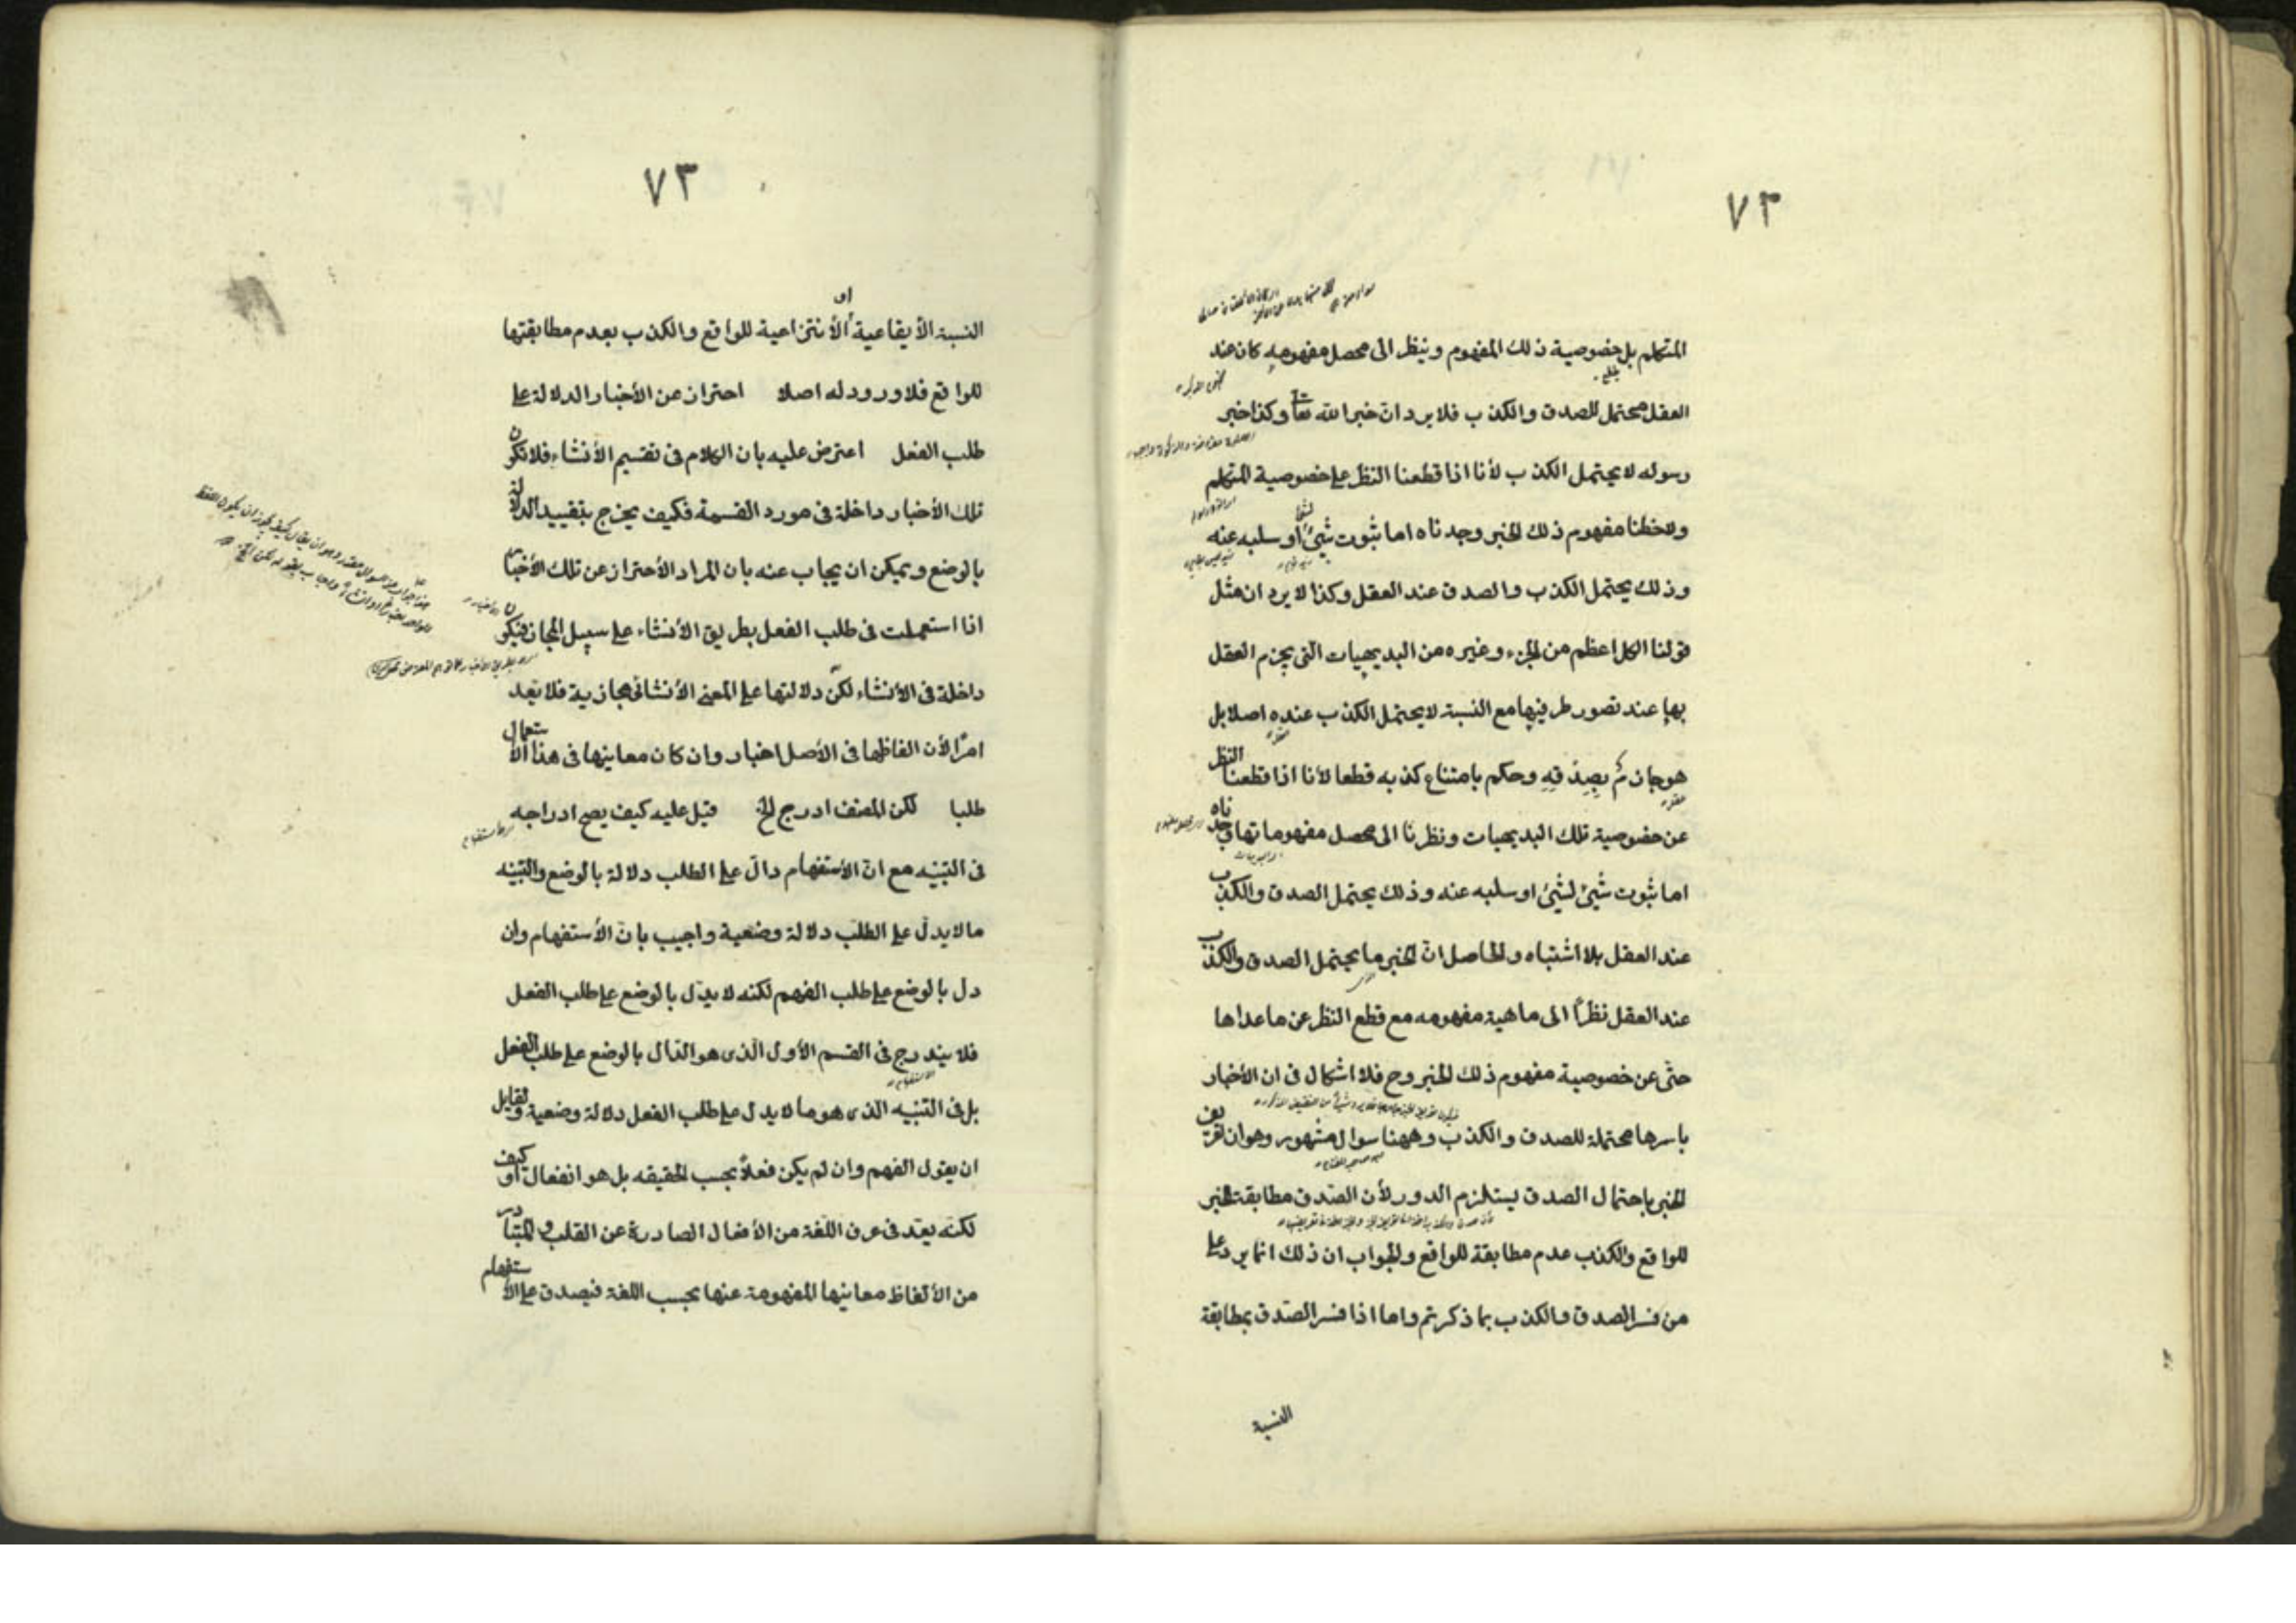 ٧٣
المتكلم بل خصوصية ذلك المفهوم وينظر الى محصل مفهومه كان عند
العقل محتمل للصدق والكذب فلا يرد ان خبر الله تعا وكذا خبر
رسوله لا يحتمل الكذب لأنا اذا قطعنا النظر على خصوصية المتكلم
ولاحظنا مفهوم ذلك الخبر وجدناه اما ثبوت شيئ او سلبه عنه
وذلك يحتمل الكذب والصدق عند العقل وكذا لا يرد ان مثل
قولنا الكل اعظم من الجزء وغيره من البديهيات التى يجزم العقل
بها عند تصور طرفيها مع النسبة لا يحتمل الكذب عنده اصلا بل
هو جازم بصدقه وحكم بامتناع كذبه قطعا لأنا اذا قطعنا النظر
عن خصوصية تلك البديهيات ونظرنا الى محصل مفهوماتها وجدناه
اما ثبوت شيئ لشيئ او سلبه عنه وذلك يحتمل الصدق والكذب
عند العقل بلا اشتباه والحاصل انّ الخبر ما يحتمل الصدق والكذب
عند العقل نظراً الى ماهية مفهومه مع قطع النظر عن ما عداها
حتّى عن خصوصية مفهوم ذلك الخبر وح فلا اشكال فى ان الأخبار
باسرها محتملة للصدق والكذب وههنا سوال مشهور وهو ان تعريف
الخبر باحتمال الصدق يستلزم الدور لأن الصّدق مطابقة الخبر
للواقع والكذب عدم مطابقة للواقع والجواب ان ذلك انما يرد على
من فسر الصدق والكذب بما ذكرتم واما اذا فسر الصّدق بمطابقة
النسبة
٧٣
النسبة الأيقاعية او الأنتزاعية للواقع والكذب بعدم مطابقتها
للواقع فلا ورود له اصلا احتراز عن الأخبار الدلالة على
طلب الفعل اعترض عليه بان الكلام فى تقسيم الأنشاء فلا تكون
تلك الأخبار داخلة فى مورد القسمة فكيف يخرج بتقييد الدلالة
بالوضع ويمكن ان يجاب عنه بان المراد الأحتراز عن تلك الأخبار
اذا استعملت فى طلب الفعل بطريق الأنشاء على سبيل المجاز فيكون
داخلة فى الأنشاء لكنّ دلالتها على المعنى الأنشائى مجازية فلا تعد
امرًا لأن الفاظها فى الأصل اخبار وان كان معاينها فى هذا الاستعمال
طلبا لكن المصنف ادرج الخ قيل عليه كيف يصح ادراجه
فى التنبيه مع انّ الأستفهام دالّ على الطلب دلالة بالوضع والتنبيه
ما لا يدلّ على الطلب دلالة وضعية واجيب بانّ الأستفهام وان
دل بالوضع على طلب الفهم لكنه لا يدّل بالوضع على طلب الفعل
فلا يندرج فى القسم الأول الذى هو الدّال بالوضع على طلب الفعل
بل فى التنبيه الذى هو ما لا يدل على طلب الفعل دلالة وضعية ولقايل
ان يقول الفهم وان لم يكن فعلاً بحسب الحقيقه بل هو انفعال او كيف
لكنّه يعدّ فى عرف اللّغة من الأفعال الصادرة عن القلب والمتبادر
من الألفاظ معاينها المفهومة عنها بحسب اللغة فيصدق على الأستفهام